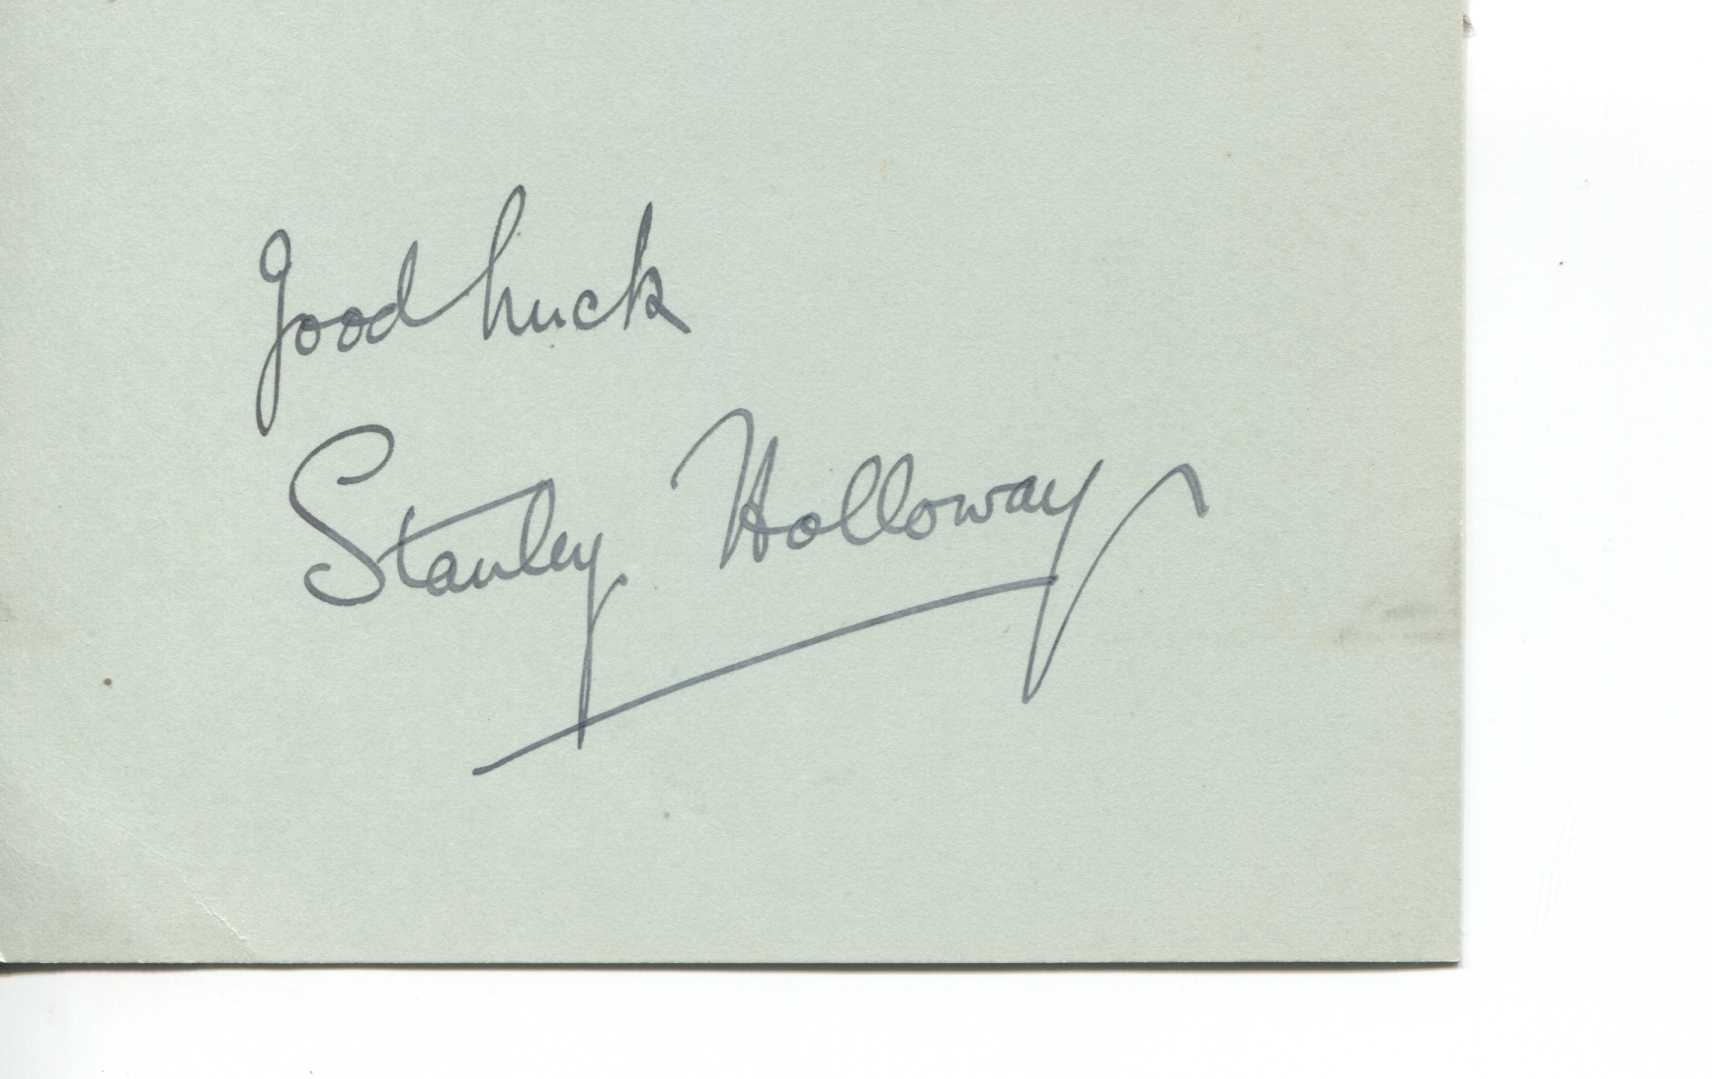 Good Luck
Stanley Holloway